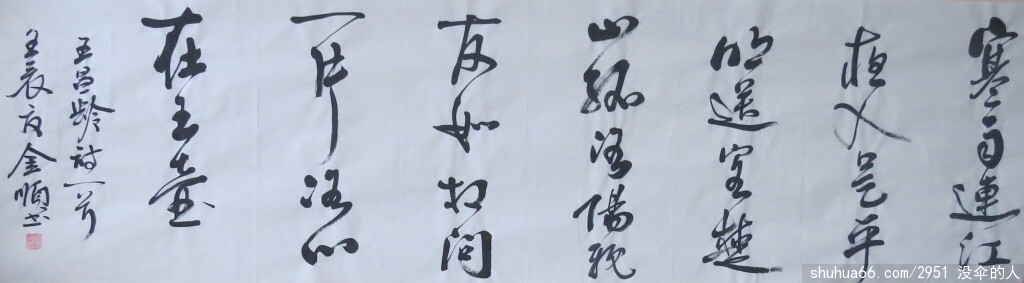 寒雨連江
夜入吴平
明送客楚
山孤洛陽親
友如相問
一片冰心
在玉壺
王昌龄詩一首
壬辰夏金順书
shuhua66.com/2951 没伞的人